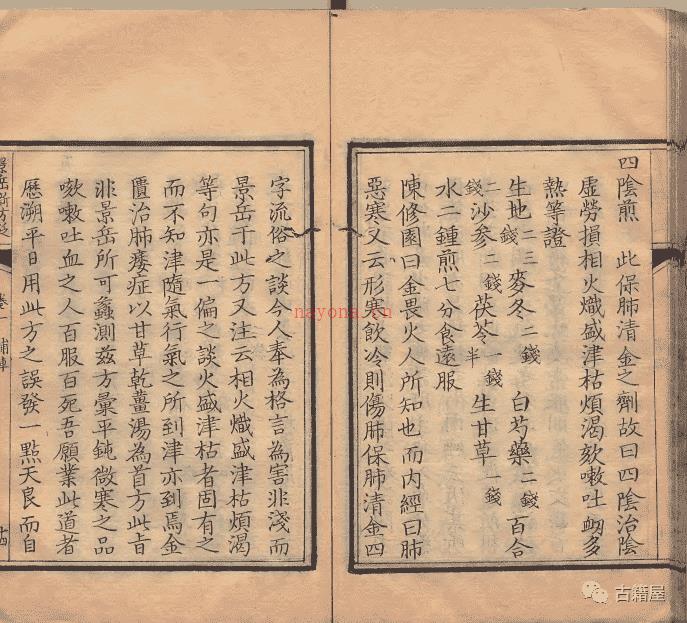 四陰煎　此保肺清金之劑故曰四陰治陰
虛勞損相火熾盛津枯煩渴欬嗽吐衂多
熱等證
生地二三錢　麥冬二錢　白芍藥二錢　百合
二錢　沙參二錢　茯苓一錢半　生甘草一錢
水二鍾煎七分食遠服
陳修園曰金畏火人所知也而內經曰肺
惡寒又云形寒飲冷則傷肺保肺清金四
字流俗之談今人奉為格言為害非淺而
景岳于此方又注云相火熾盛津枯煩渴
等句亦是一偏之談火盛津枯者固有之
而不知津隨氣行氣之所到津亦到焉金
匱治肺痿症以甘草乾薑湯為首方此旨
非景岳所可蠡測茲方彙平鈍微寒之品
欬嗽吐血之人百服百死吾願業此道者
歷溯平日用此方之誤發一點天良而自
景岳新方砭
卷一
補陣
十四
nayona.cn
古籍屋